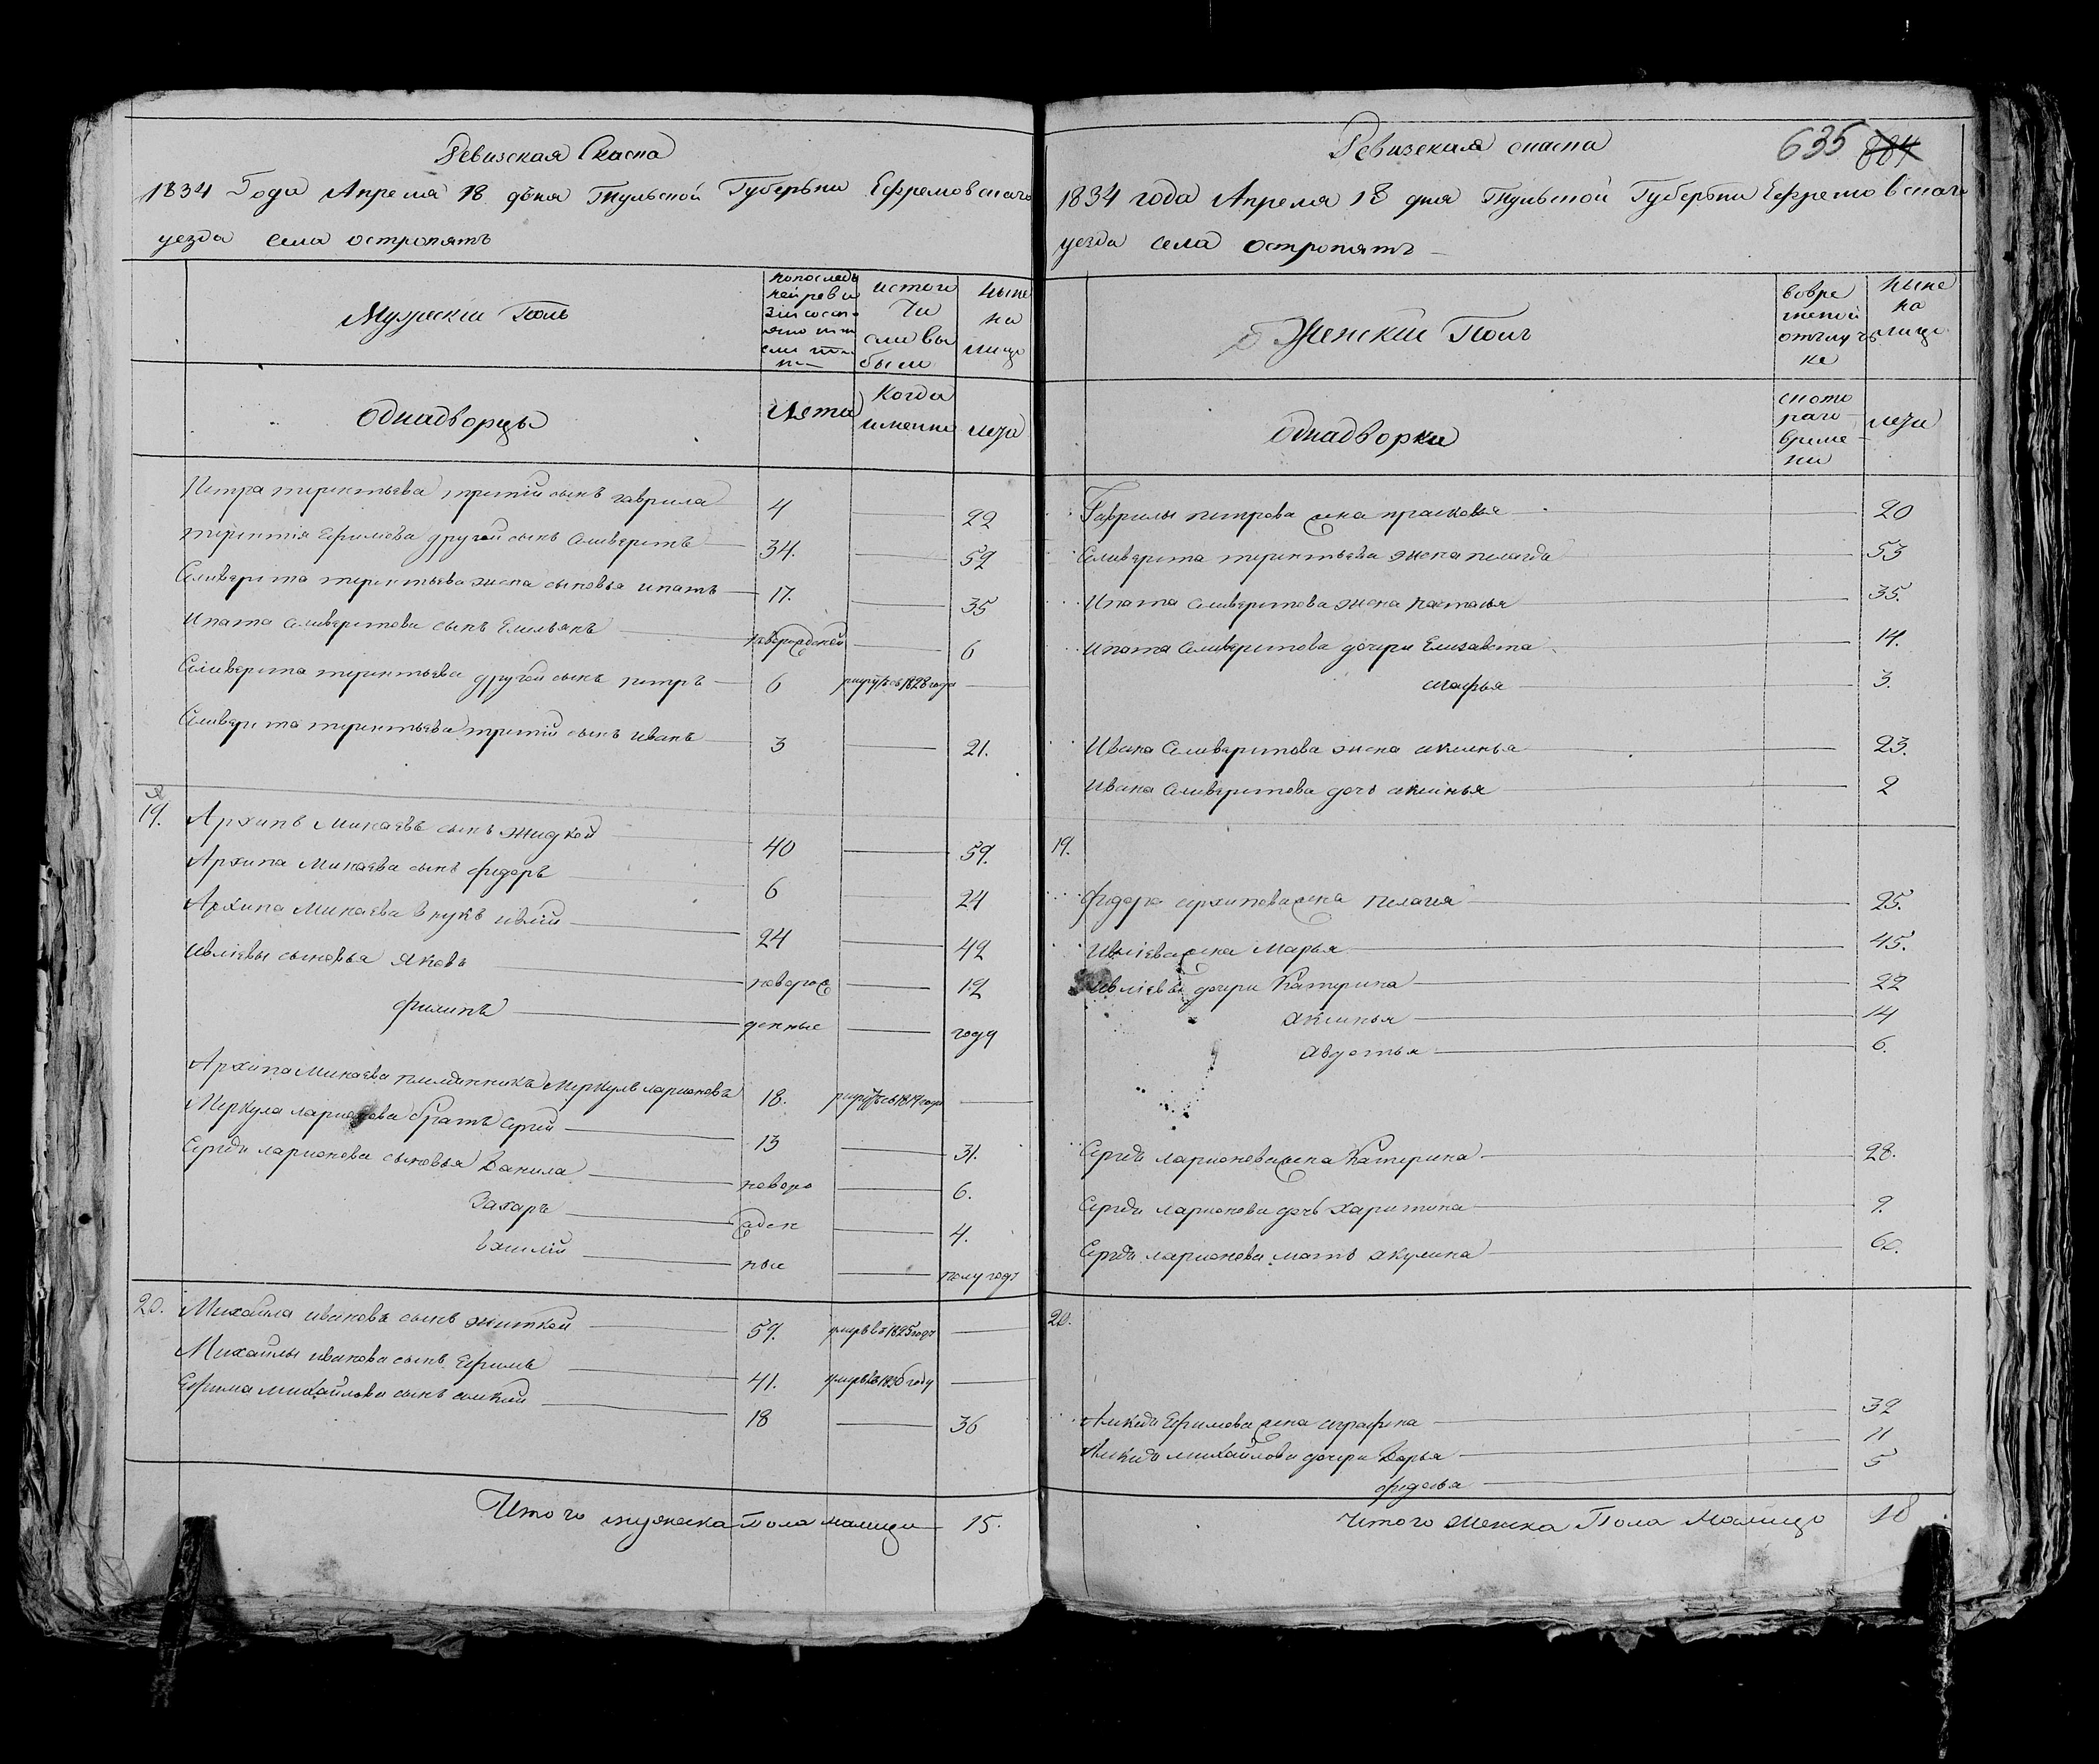 Ревизская Скаска
1834 Года Апреля 18 дьня Тульской Губерьни Ефремовскаго
уезда села остропятъ
Мужескiи Полъ
попоследь
ней реви
зiи состо
яло
ли
истого
Чи
сла вы
было
ныне
на
лицо
однадворцы
Лета
Когда
именно
лета
Петра терентьева третiй сынъ гаврила 4 22
терентiя Ефимова другой сынъ Сливерстъ 34. 59
Сливерста терентьева жена сыновья ипатъ 17. 35
Ипата Сливерстова сынъ Емельянъ новорожденой 6
Сливерста терентьева другой сынъ петръ 6 1828 года
Сливерста терентьева третiй сынъ иванъ 3 21.
19. Архипъ Минаевъ сынъ жидкой 40 59.
Архипа Минаева сынъ федоръ 6 24
Архипа Минаева внукъ ивлiй 24 42
ивлiевы сыновья яковъ новорож 12
филипъ денные году
Архипа Минаева племянникъ меркулъ ларионовъ 18. 1817 года
Меркула ларионова братъ сергей 13 31.
Сергея ларионова сыновья Данила новоро 6.
Захаръ жден 4.
василiй ные полу годъ
20. Михайла ивановъ сынъ житкой 59. умеръ въ 1825 годъ
Михайлы иванова сынъ Ефимъ 41. умеръ въ 1830 году
Ефима михайлова сынъ алисей 18 36
Итого мужеска Пола налицо 15.
Ревизская скаска 635 884
1834 года Апреля 18 дня Тульской Губерьни Ефремовскаго
уезда села остропятъ
Женскiи Полъ
вовре
менной
отлуч
ке
ныне
на
лицо
однадворки
ското
раго
време
ни
лета
Гаврилы петрова жена прасковья 20
Сливерста терентьева жена пелагея 53
Ипата Сливерстова жена наталья 35.
ипата Сливерстова дочери Елизавета 14.
марья 3.
Ивана Сливерстова жена аксинья 23.
Ивана Сливерстова дочь аксинья 2
19.
Федора архипова жена пелагея 25.
ивлiева жена Марья 45.
ивлiевы дочери Катрина 22
аксинья 14
авдотья 6.
Сергея ларионова жена Катерина 28.
Сергея ларионова дочь харитина 9.
Сергея ларионова мать акулина 60.
20.
Алисея Ефимова жена аграфена 32
Алисея михайлова дочери Дарья 11
федосья 5
Итого Женска Пола Налицо 18